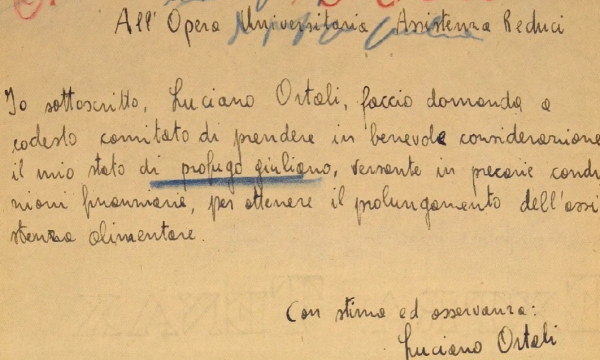 All' Opera Universitaria Assistenza Reduci
Io sottoscritto, Luciano Ortali, faccio domanda a
codesto comitato di prendere in benevola considerazione
il mio stato di profugo giuliano, versante in precarie condi
zioni finanziarie, per ottenere il prolungamento dell'assi
stenza alimentare.
Con stima ed osservanza:
Luciano Ortali